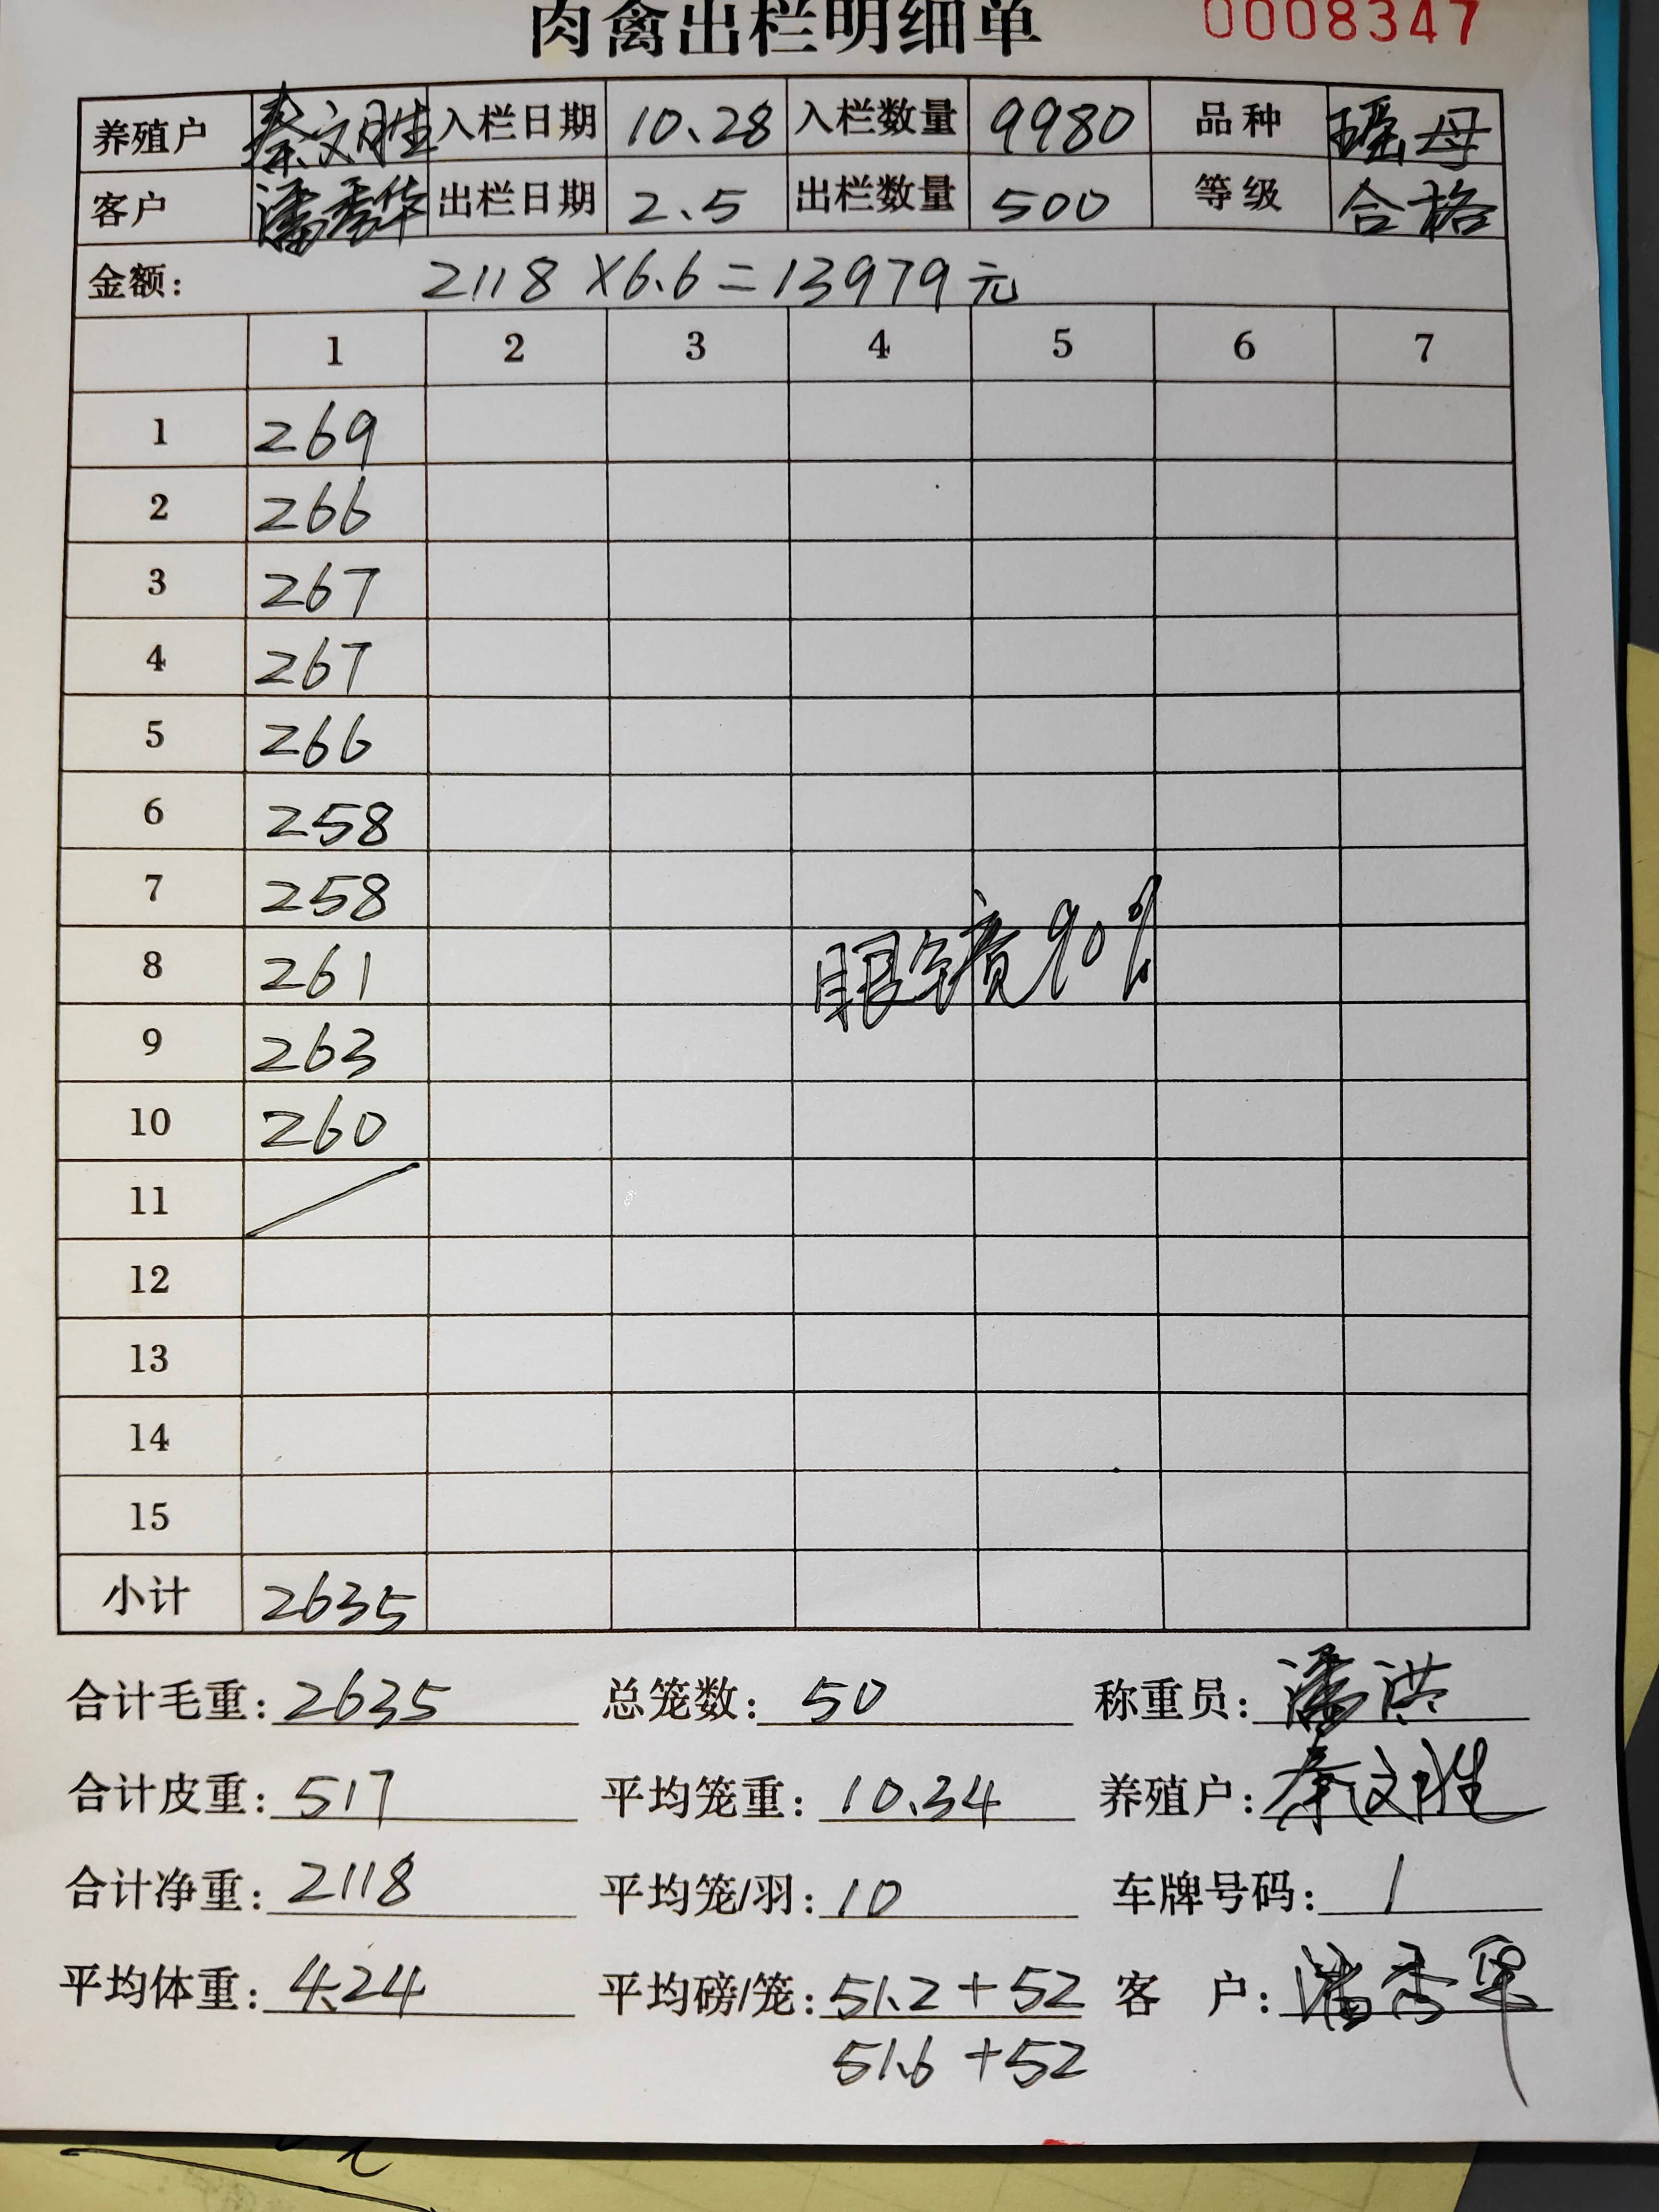 肉禽出栏明细单 0008347
养殖户 秦文胜 入栏日期 10.28 入栏数量 9980 品种 瑶母
客户 潘秀华 出栏日期 2.5 出栏数量 500 等级 合格
金额: 2118×6.6=13979元
1 2 3 4 5 6 7
1 269
2 266
3 267
4 267
5 266
6 258
7 258
8 261 眼镜90%
9 263
10 260
11
12
13
14
15
小计 2635
合计毛重: 2635 总笼数: 50 称重员: 潘洪
合计皮重: 517 平均笼重: 10.34 养殖户: 秦文胜
合计净重: 2118 平均笼/羽: 10 车牌号码: 1
平均体重: 4.24 平均磅/笼: 51.2+52 客 户: 潘秀华
51.6+52